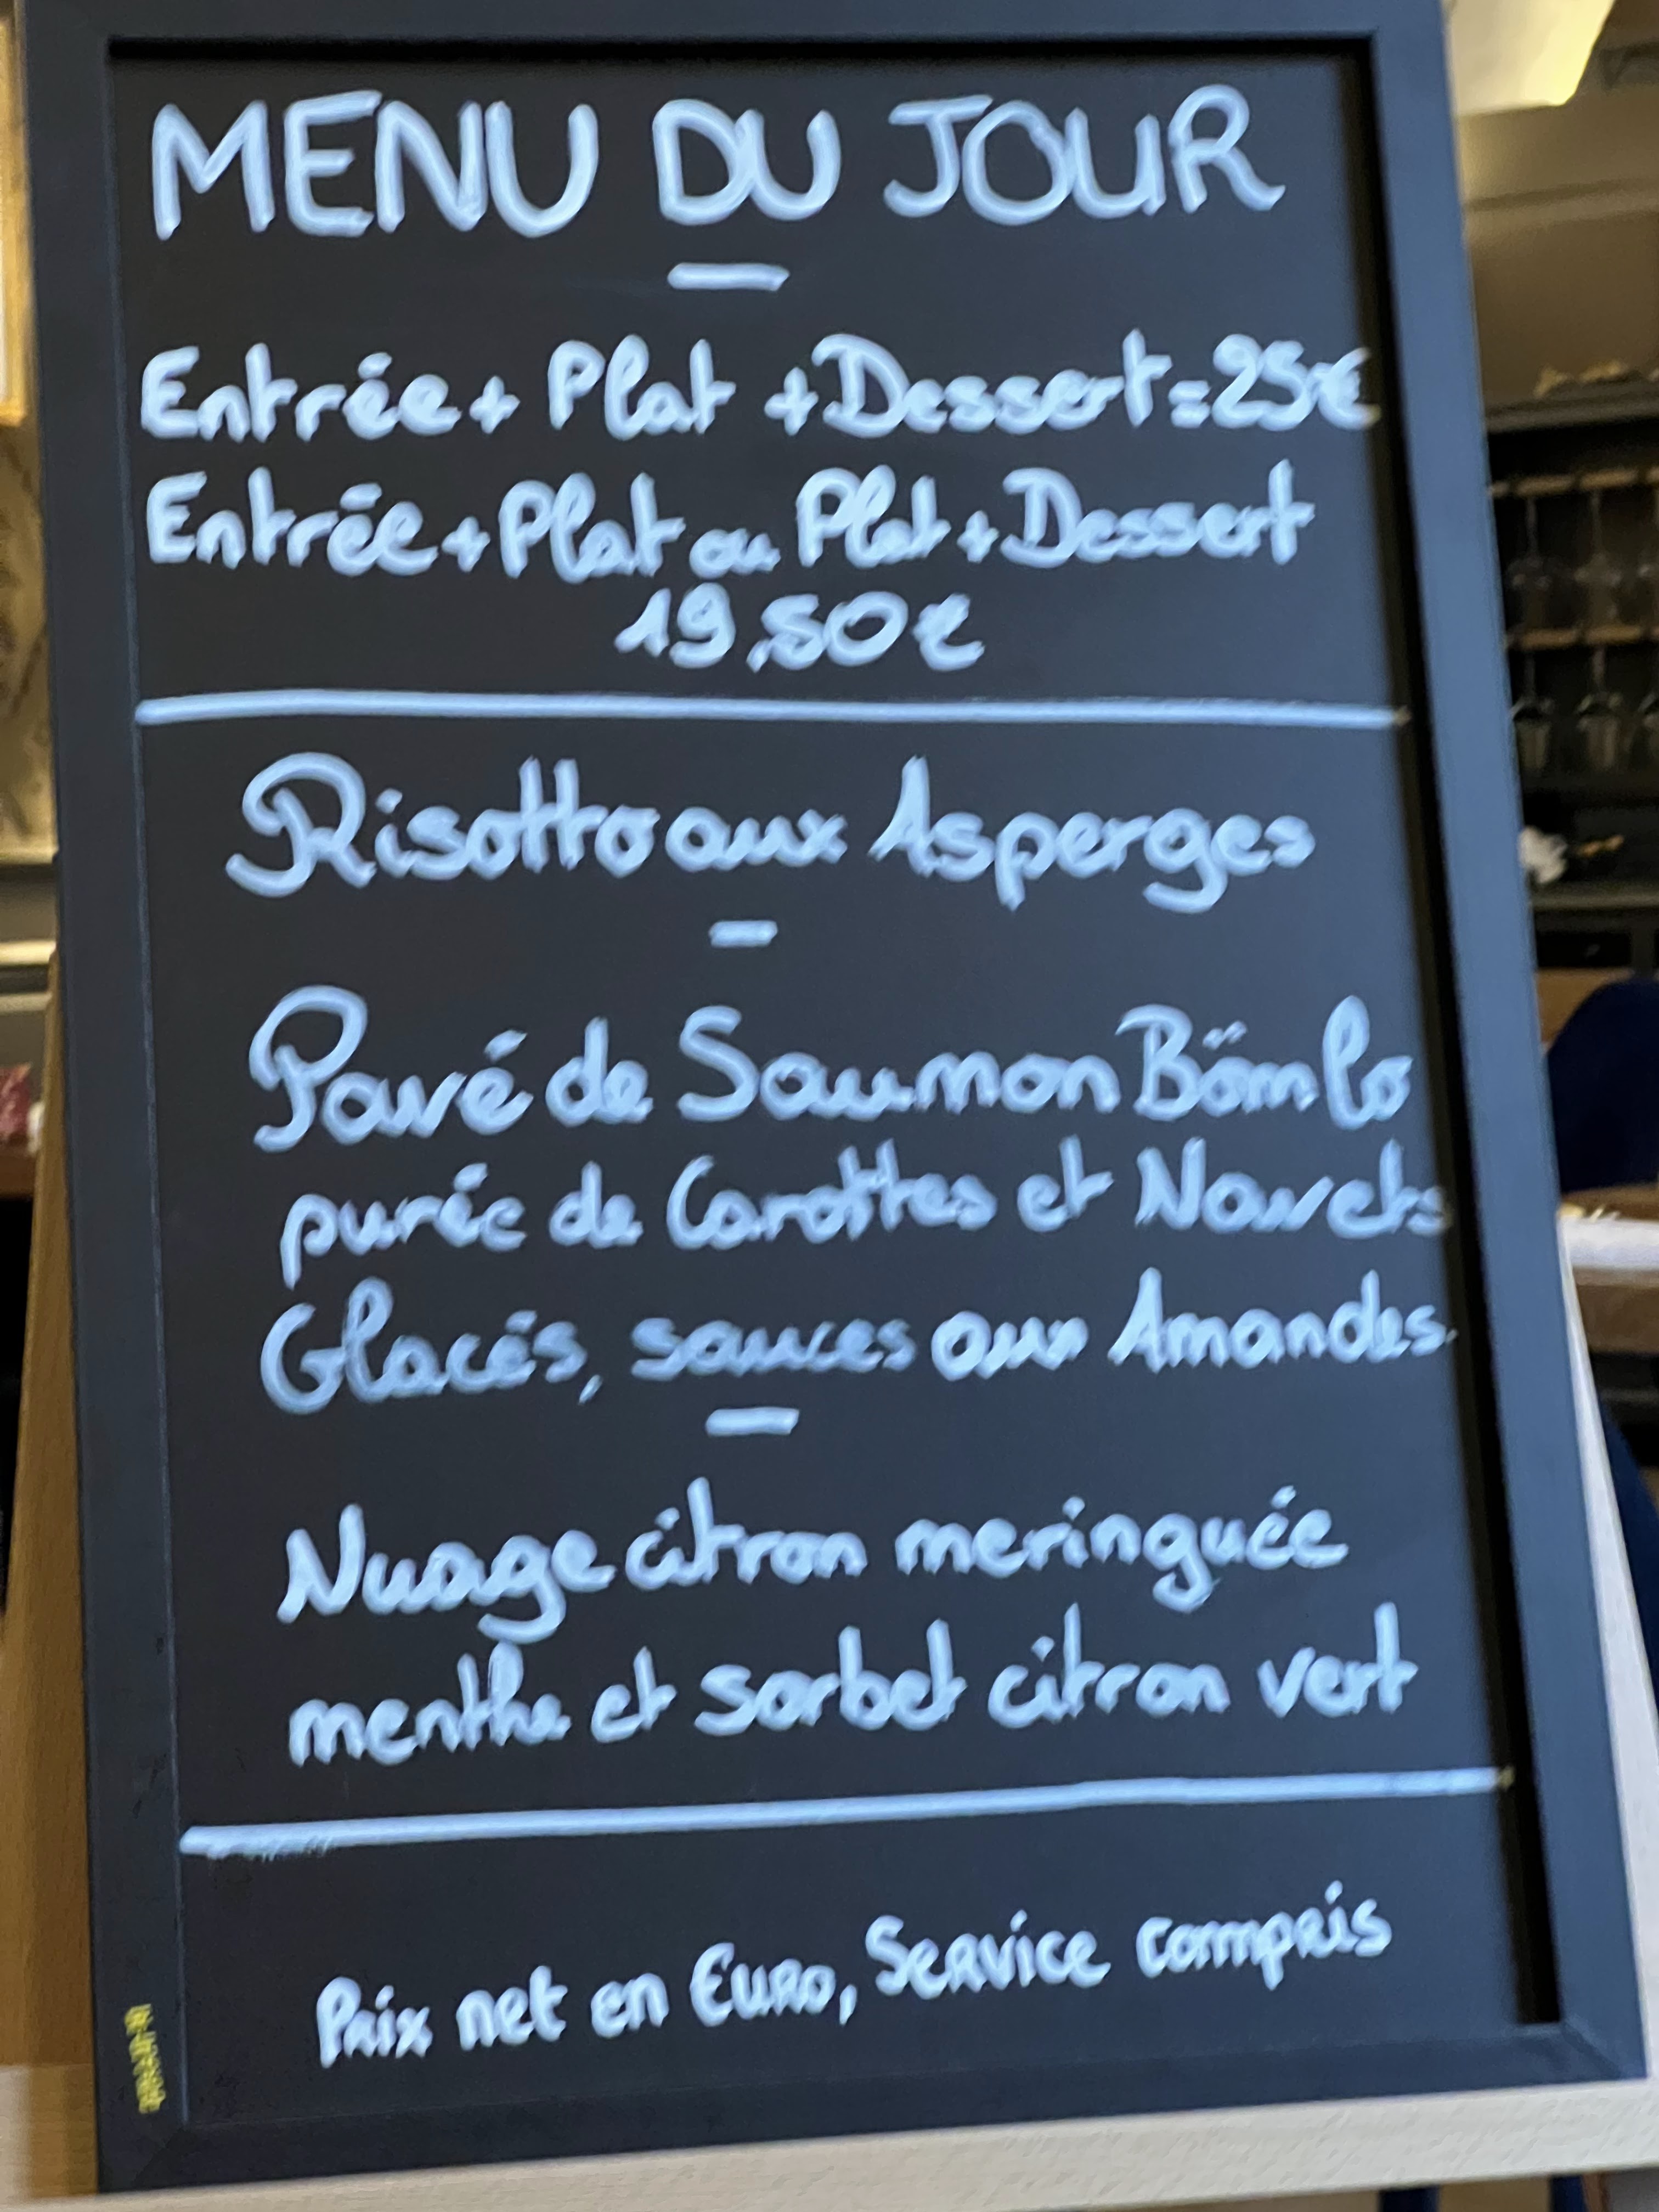 MENU DU JOUR
Entrée + Plat + Dessert = 25€
Entrée + Plat ou Plat + Dessert
19,50€
Risotto aux Asperges
Pavé de Saumon Bömlo
purée de Carottes et Navets
Glacés, sauces aux Amandes.
Nuage citron meringuée
menthe et sorbet citron vert
Prix net en Euro, Service compris